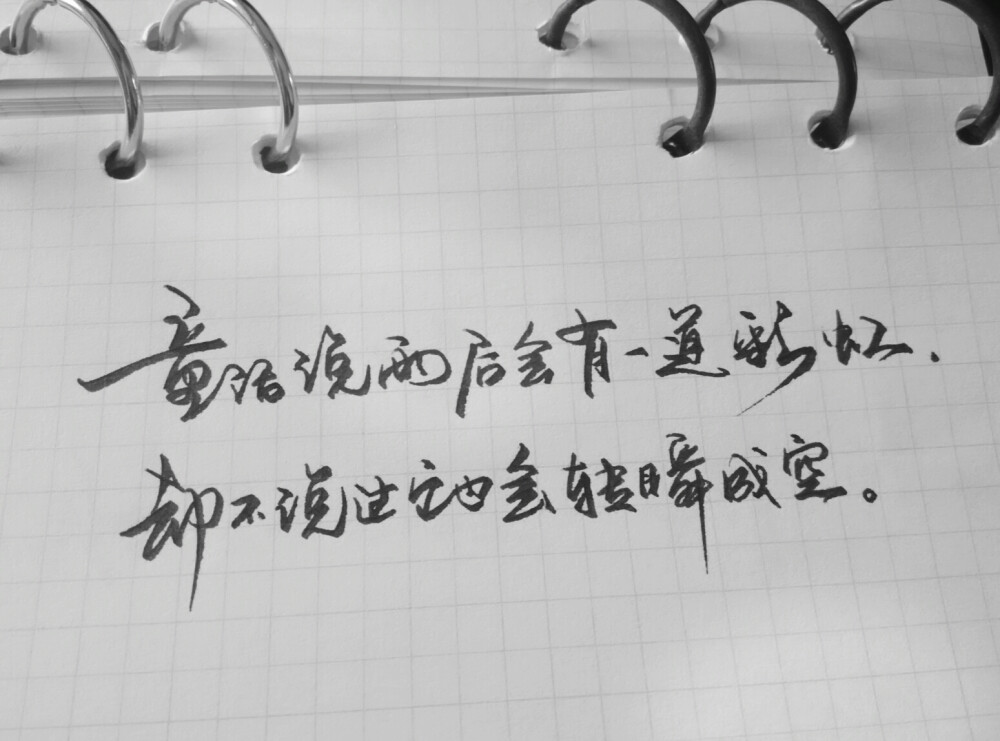 童话说雨后会有一道彩虹，
却不说过它也会转瞬成空。